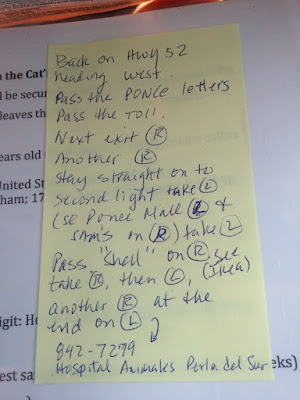 Back on Hwy 52
heading west.
Pass the PONCE letters
Pass the TOLL.
Next exit R
Another R
Stay straight on to
second light take L
(see Ponce Mall L &
SAM'S on R) take L
Pass "Shell" on R, see
take R, then L, (Ikea)
another R at the
end on L
842-7279
Hospital Animales Perla del Sur
n the Cat'
l be secur
leaves th
ears old
United St
ham; 17
igit: He
est sa
eks)